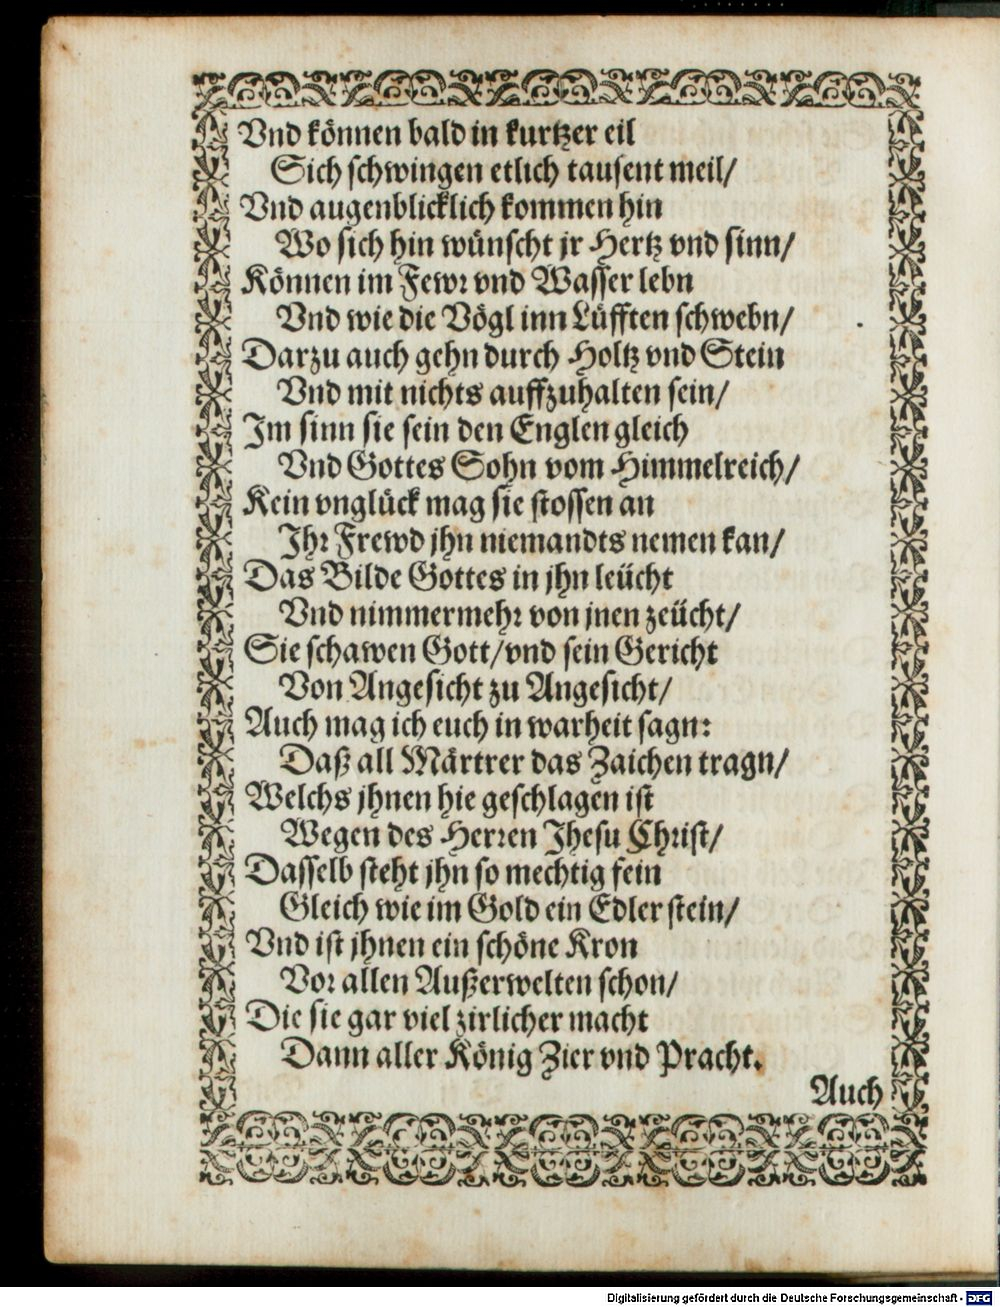 Vnd können bald in kurtzer eil
Sich schwingen etlich tausent meil/
Vnd augenblicklich kommen hin
Wo sich hin wünscht jr Hertz vnd sinn/
Können im Fewr vnd Wasser lebn
Vnd wie die Vögl inn Lüfften schwebn/
Darzu auch gehn durch Holtz vnd Stein
Vnd mit nichts auffzuhalten sein/
Im sinn sie sein den Englen gleich
Vnd Gottes Sohn vom Himmelreich/
Kein vnglück mag sie stossen an
Ihr Frewd jhn niemandts nemen kan/
Das Bilde Gottes in jhn leücht
Vnd nimmermehr von jnen zeücht/
Sie schawen Gott/vnd sein Gericht
Von Angesicht zu Angesicht/
Auch mag ich euch in warheit sagn:
Daß all Märtrer das Zaichen tragn/
Welchs jhnen hie geschlagen ist
Wegen des Herren Jhesu Christ/
Dasselb steht jhn so mechtig fein
Gleich wie im Gold ein Edler stein/
Vnd ist jhnen ein schöne Kron
Vor allen Außerwelten schon/
Die sie gar viel zirlicher macht
Dann aller König Zier vnd Pracht.
Auch
Digitalisierung gefördert durch die Deutsche Forschungsgemeinschaft - DFG